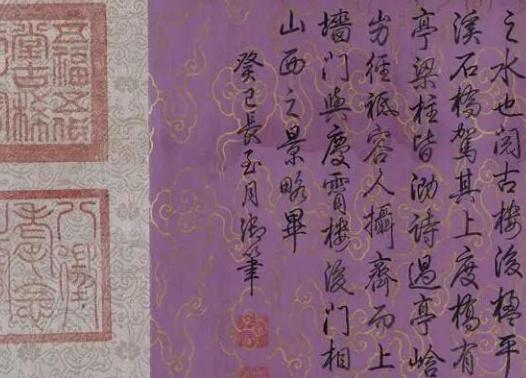 之水也閱古樓後楹平
溪石橋駕其上度橋有
亭梁柱皆泐詩過亭峆
岈徑祗容人攝齊而上
墻門與慶霄樓後門相
山西之景略畢
癸巳長至月御筆
五福五代
堂古稀
八徵
耄念